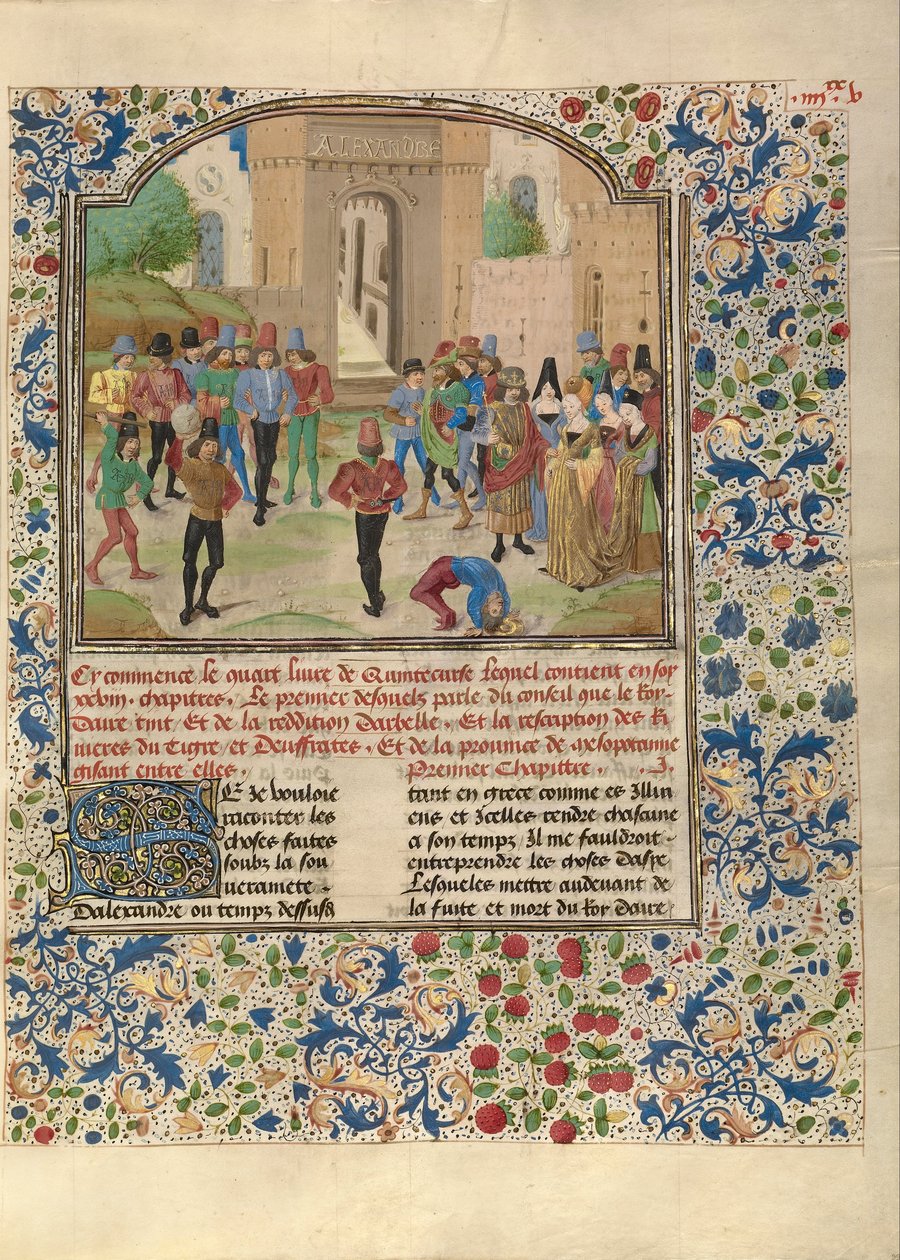 .iiii.xx v
ALEXANDRE
Cy commence le quart livre de Quintecurse lequel contient en soy
xxbiii. chapitres. Le premier desquelz parle du conseil que le Roy
Daire tint / Et de la reddition Darbelle. Et la rescription des Ri
uieres du Tigre / et Deuffrates. Et de la prouince de mesopotamie
gisant entre elles.
Premier Chapittre. .I.
SE Je vouloie
raconter les
choses faites
soubz la sou
ueraineté
Dalexandre ou temps dessusd
tant en grece comme es Illiri
ens et Icelles rendre chascune
a son temps Il me fauldroit
entreprendre les choses Dasye
Lesqueles mettre audeuant de
la fuite et mort du Roy Daire